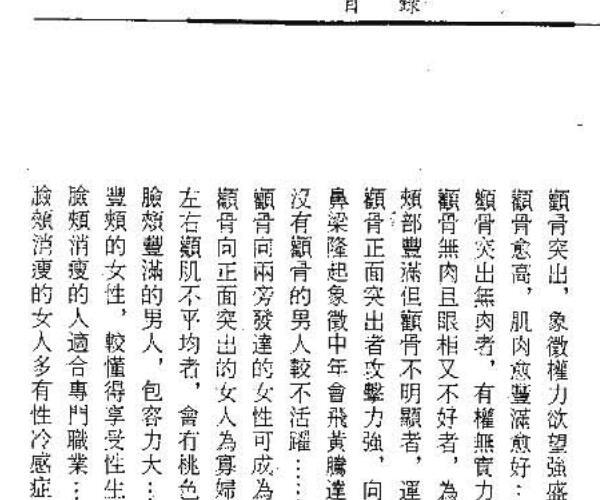 目錄
顴骨突出，象徵權力欲望強盛
顴骨愈高，肌肉愈豐滿愈好…
顴骨突出無肉者，有權無實力
顴骨無肉且眼相又不好者，為
頰部豐滿但顴骨不明顯者，運
顴骨正面突出者攻擊力強，向
鼻梁隆起象徵中年會飛黃騰達
沒有顴骨的男人較不活躍……
顴骨向兩旁發達的女性可成為
顴骨向正面突出的女人為寡婦
左右顴肌不平均者，會有桃色
臉頰豐滿的男人，包容力大…
豐頰的女性，較懂得享受性生
臉頰消瘦的人適合專門職業…
臉頰消瘦的女人多有性冷感症